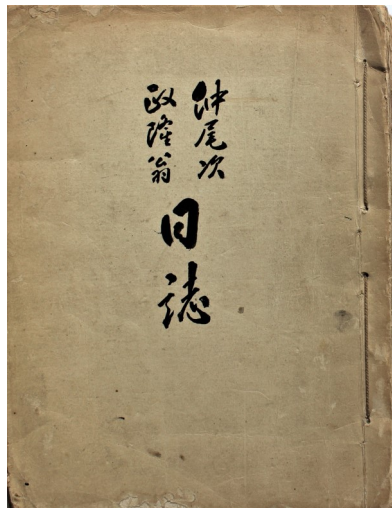 仲尾次
政隆翁
日誌